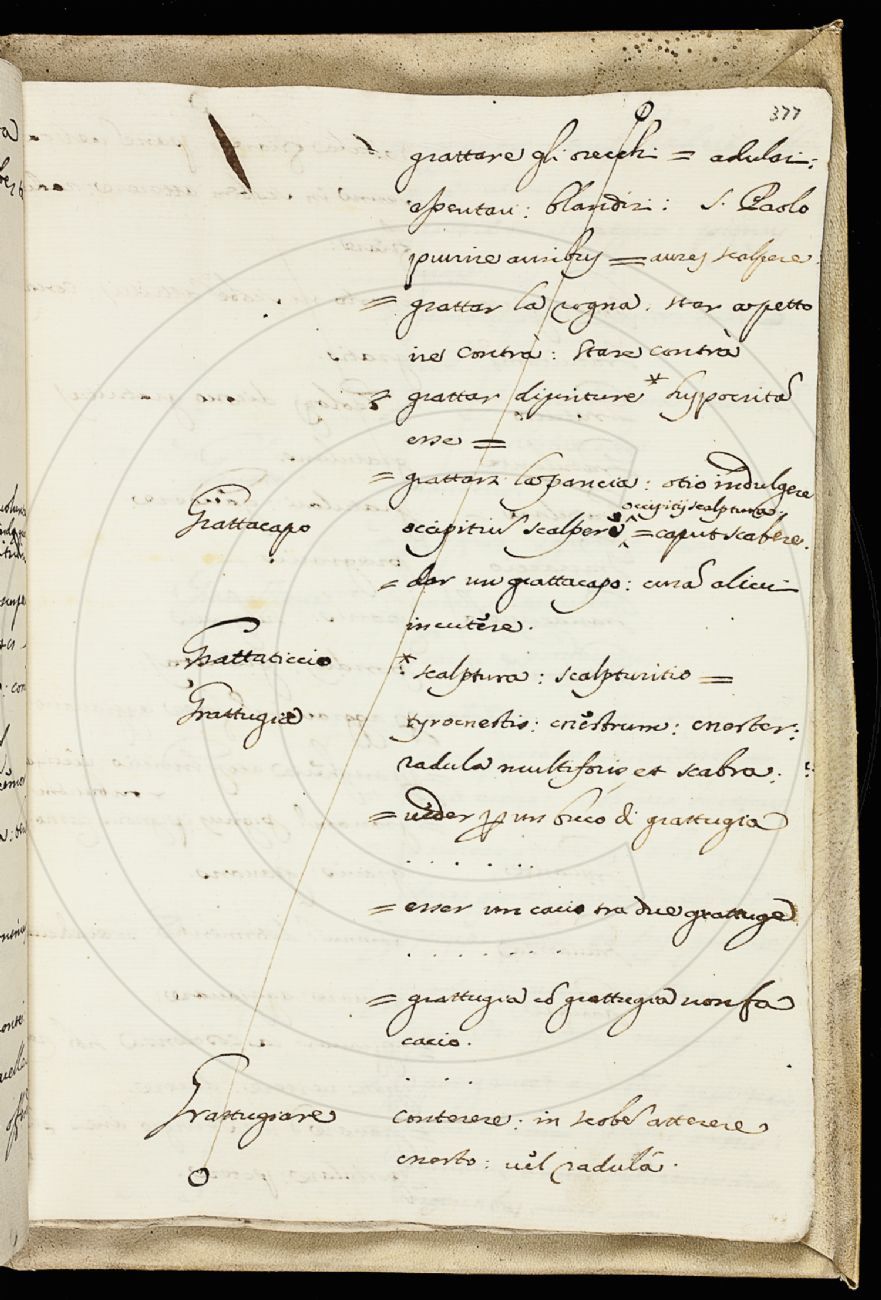 377
grattare gli orecchi = adulari:
assentari: blandiri: S. Paolo
prurire auribus = aures scalpere.
= grattar la rogna. star a petto
ire contra: stare contrà
= grattar * hypocritā
esse =
= grattarsi la pancia: otio indulgere
occipitij scalptura.
Grattacapo occipitiū scalpere ^ = caput scabere.
= dar un grattacapo: curā alicui
incutere.
Grattaticcio * scalptura: scalpturitio =
Grattugia tyrocnestis: cnestrum: cnester:
radula multiforis et scabra:
= veder p un buco di grattugia
. . . . . .
= esser un cacio tra due grattuge
. . . . . . .
= grattugia cō grattugia non fa
cacio.
. . . .
Grattugiare conterere: in scobē atterere
cnesto: vel radulâ.